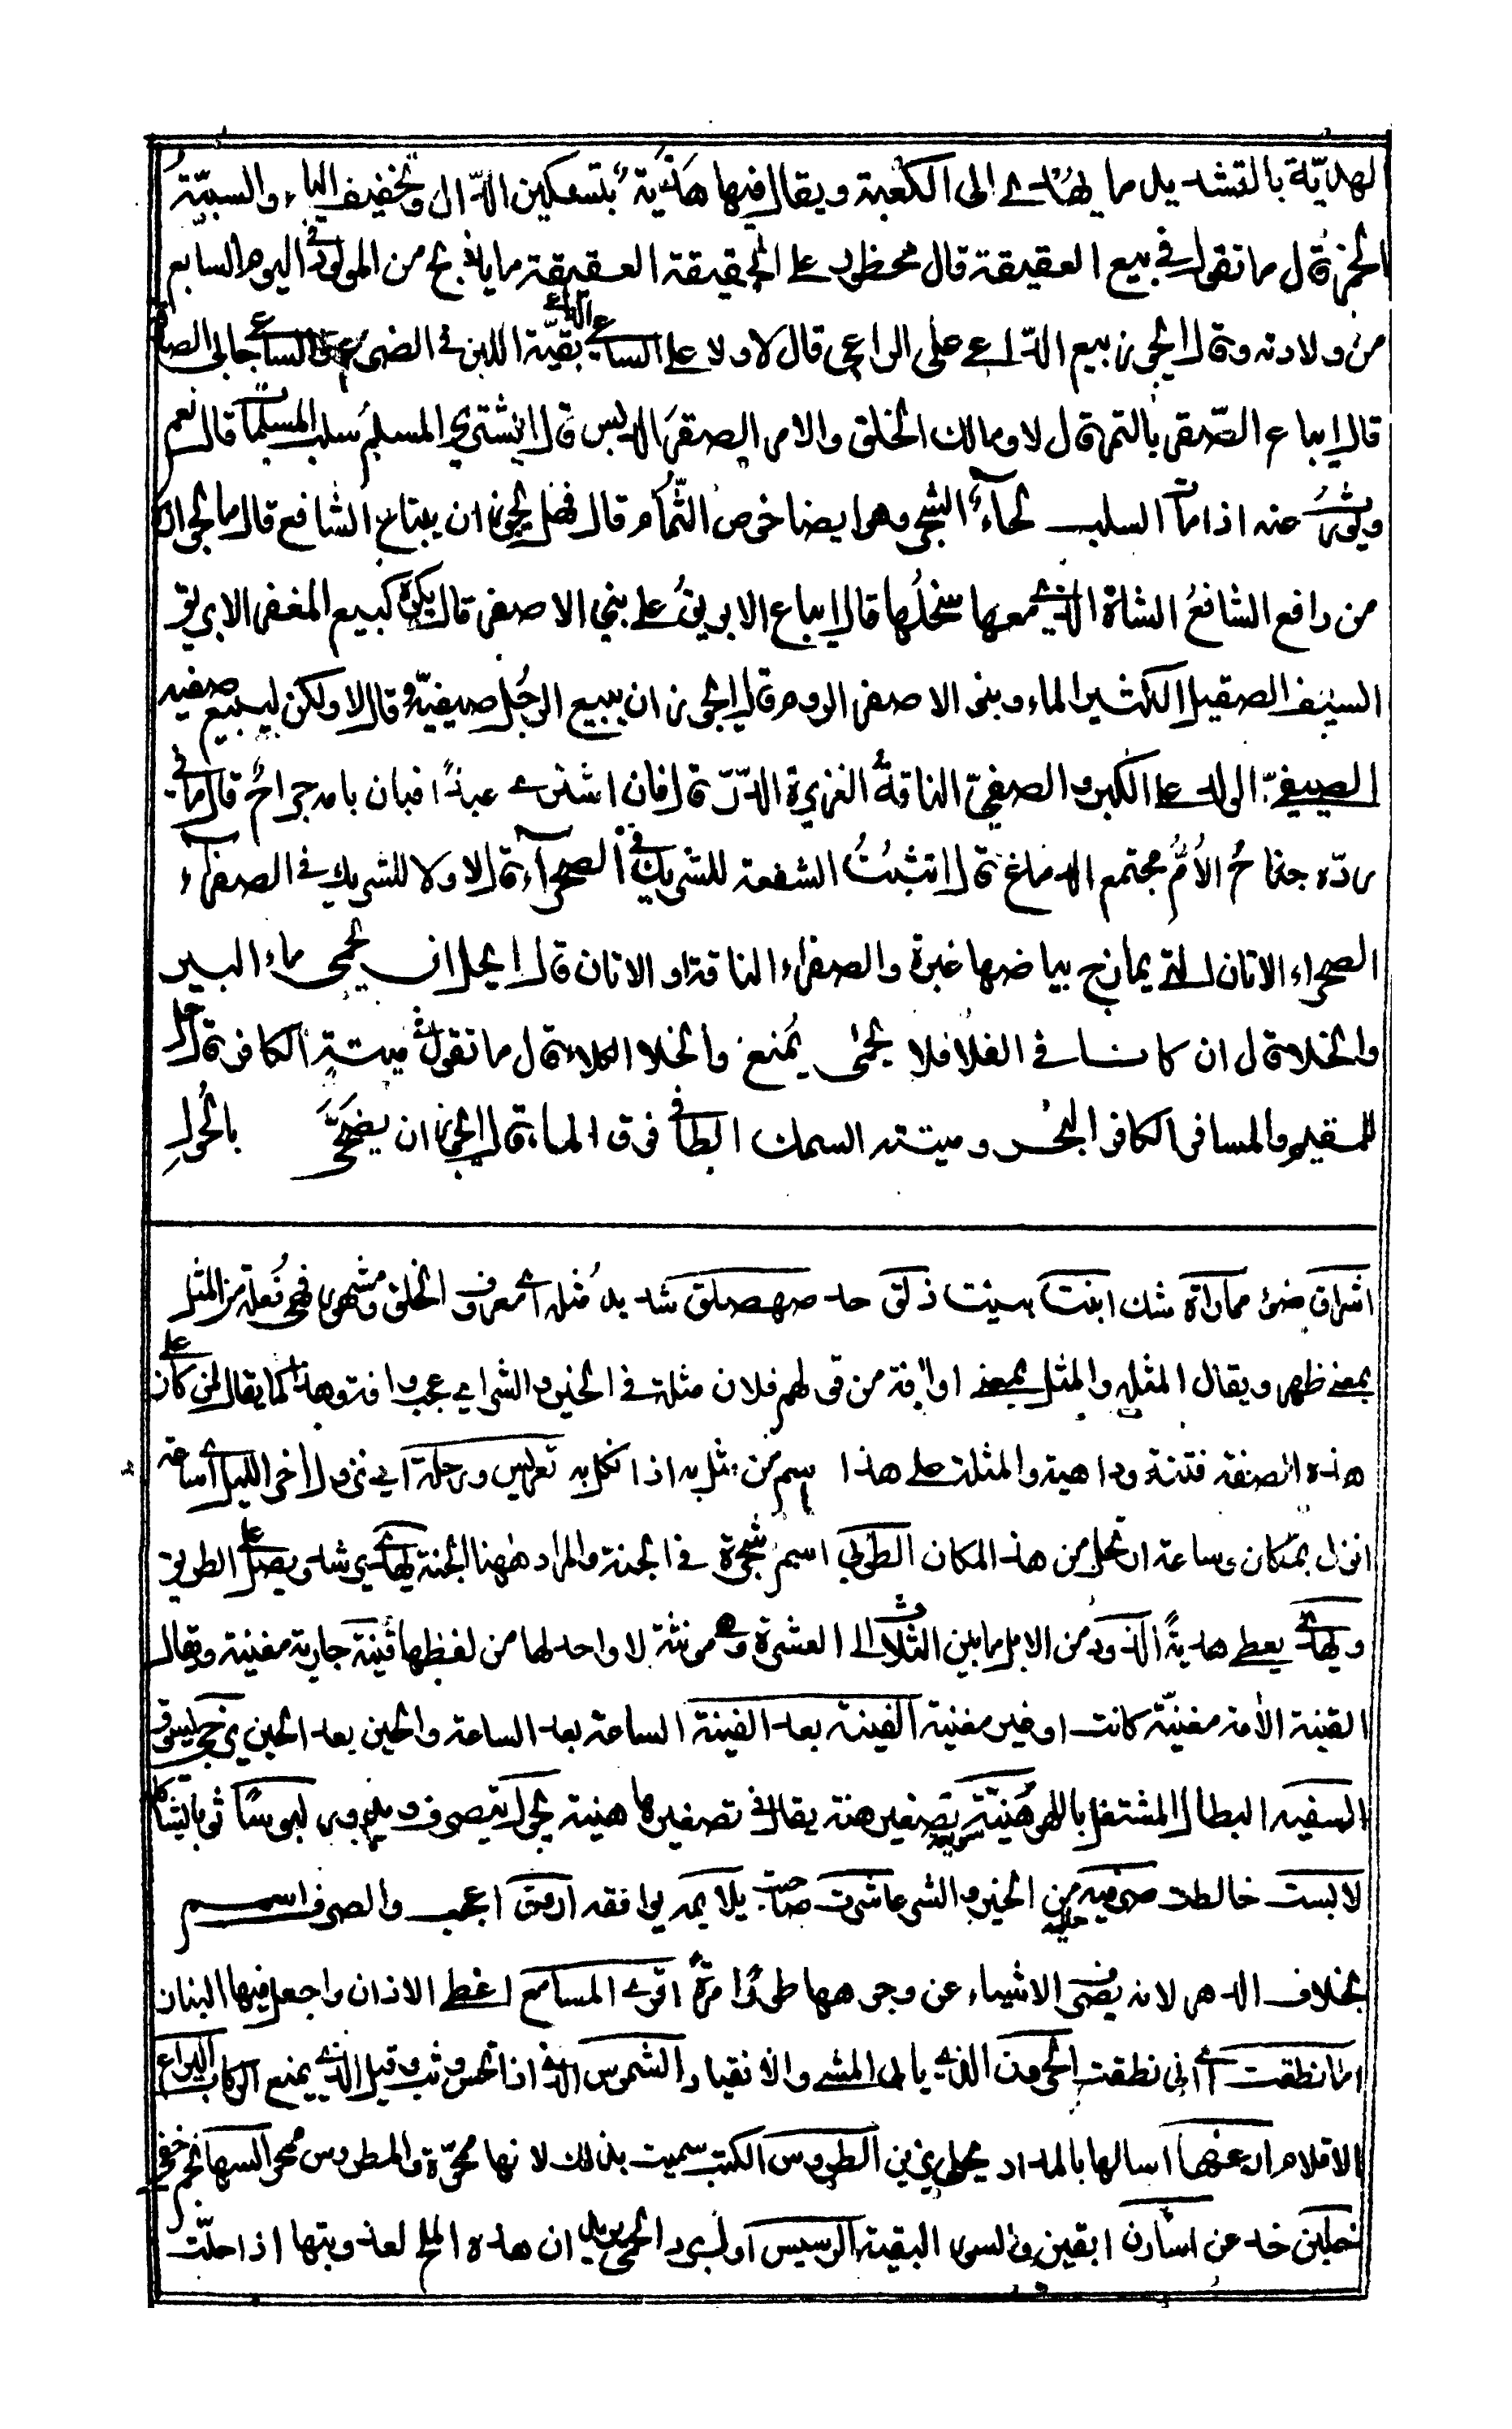 الهديّة بالتشديد ما يهدى الى الكعبة ويقال فيها هَدْيَة بتسكين الدّال وتخفيف الياء والسبيّة
الخمر قال ما تقول في بيع العقيقة قال محظور على الحقيقة العقيقة ما يذبح من المولود في اليوم السابع
من ولادته وقال ايجوز بيع الدّاعي على الراعي قال لا ولا على الساعي الداعي بقيّة اللبن في الضرع والساعي جابي الصدقة
قال ايباع الصّقر بالتمر قال لا ومالك الخلق والامر الصقر الدبس قال ايشتري المسلم سلب المسلمات قال نعم
ويورث عنه اذا مات السلب لحاء الشجر وهو ايضا خوص الثّمام قال فهل يجوز ان يبتاع الشافع قال ما لجوازه
من دافع الشافع الشاة التي معها سخلُها قال ايباع الابريق على بني الاصفر قال يكره كبيع المغفر الابريق
السيف الصقيل الكثير الماء وبني الاصفر الروم قال ايجوز ان يبيع الرجُل صيفيّه قال لا ولكن ليبيع صفيه
الصيفيّ الولد على الكبر والصفيّ الناقة الغزيرة الدّرّ قال فان اشترى عبدًا فبان بامه جراحٌ قال ما في
ردّه جناح الاُمّ مجتمع الدماغ قال اتثبتُ الشفعة للشريك في الصحراء قال لا ولا للشريك في الصفراء
الصحراء الاتان التي يمازج بياضها غبرة والصفراء الناقة او الاتان قال ايحل ان يحمى ماء البير
والخلا قال ان كانا في الفلا فلا يحمى يُمنع والخلا الكلاء قال ما تقول في ميتة الكافر قال حل
للمقيم والمسافر الكافر البحر وميتته السمك الطافي فوق الماء قال ايجوز ان يضحّى بالحُول
اشراق ضوء مماراة شك ابنت بينت ذلق حد صهصلق شديد مُثله اي معروف الخلق ومشهور فهي فُعلة من المثل
بمعنى ظهر ويقال المثله والمثل بمعنى او افة من قولهم فلان مثلة في الخير والشر اي عجب وافة وهذا كما يقال لمن كان على
هذه الصفة فتنة وداهية والمثلة على هذا اسم من مثل به اذا نكل به تعريس ورحلة اي نزول اخر الليل اي ساعة
انزل بمكان وساعة ارتحل من هذا المكان الطوبي اسم شجرة في الجنة والمراد ههنا الجنة يهدى يرشد ويصل على الطريق
ويهدى يعطى هدية الذود من الابل ما بين الثلاث الى العشرة وهي مونثة لا واحد لها من لفظها قينة جارية مغنية ويقال
القينة الامة مغنيّة كانت او غير مغنية الفينة بعد الفينة الساعة بعد الساعة والحين بعد الحين يزجي يسوق
السفيه البطال المشتغل باللهو هُنيّة تصغير هنة يقال في تصغيرها هنية يجول يتصرف ويدور لبوسًا ثوبا
لابست خالطت صرفيه من الخير والشر عاشرت صاحبت يلايم يوافقه اروق اعجب والصرف اسم
بخلاف الدهر لانه يصرف الاشياء عن وجوهها طورًا مرةً اقرع المسامع اغط الاذان واجعل فيها البنان
اما نطقت اي اني نطقت الحرون الذي يابى المشي والانقياد الشموس الذي اذا نخس وثب وقيل الذي يمنع الركاب اليراع
الاقلام ارعفها اسالها بالمداد يحلى يزين الطروس الكتب سميت بذلك لانها ممحوّة والمطروس ممحو السها نجم خفي
تخلين خد عن اسارن ابقين والسور البقية الرسيس اول برد الحمى يريد ان هذه الملح لعذوبتها اذا حلّت